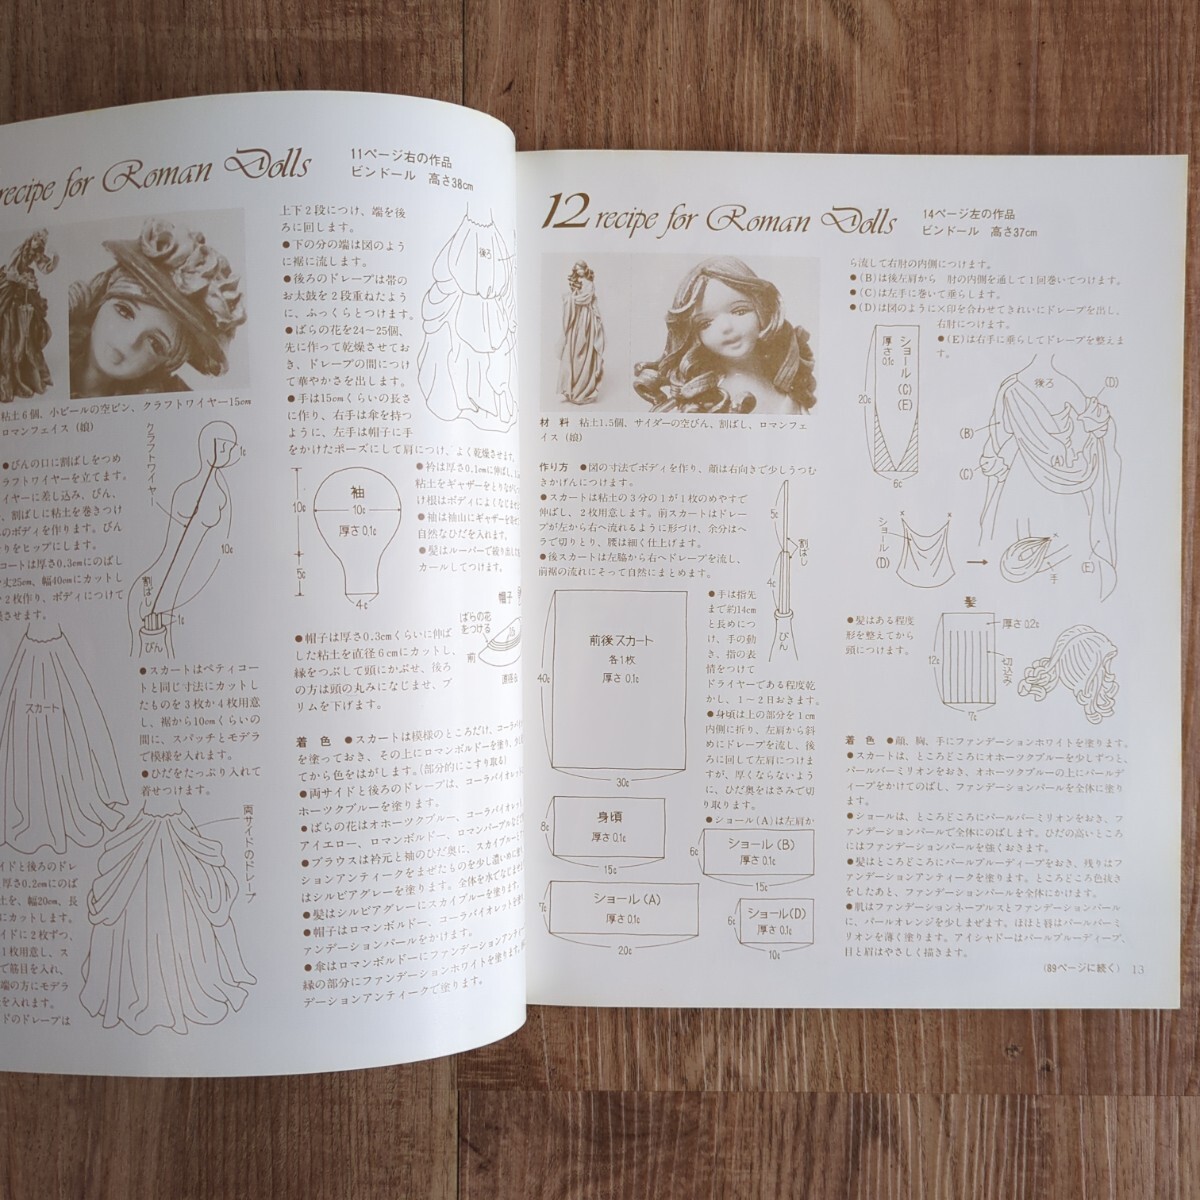 recipe for Roman Dolls
11ページ右の作品
ビンドール 高さ38cm
粘土6個、小ビールの空ビン、クラフトワイヤー15cm
ロマンフェイス(娘)
クラフトワイヤー
1c
10c
割ばし
1c
●びんの口に割ばしをつめ
ラフトワイヤーを立てます。
イヤーに差し込み、びん、
、割ばしに粘土を巻きつけ
のボディを作ります。びん
りをヒップにします。
コートは厚さ0.3cmにのばし
丈25cm、幅40cmにカットし
2枚作り、ボディにつけて
させます。
スカート
●スカートはペティコー
トと同じ寸法にカットし
たものを3枚か4枚用意
し、裾から10cmくらいの
間に、スパッチとモデラ
で模様を入れます。
●ひだをたっぷり入れて
着せつけます。
両サイドのドレープ
イドと後ろのドレー
厚さ0.2cmにのば
土を、幅20cm、長
にカットします。
イドに2枚ずつ、
1枚用意し、ス
で筋目を入れ、
端の方にモデラ
を入れます。
ドのドレープは
上下2段につけ、端を後
ろに回します。
●下の分の端は図のよう
に裾に流します。
●後ろのドレープは帯の
お太鼓を2段重ねたよう
に、ふっくらとつけます。
●ばらの花を24〜25個、
先に作って乾燥させてお
き、ドレープの間につけ
て華やかさを出します。
●手は15cmくらいの長さ
に作り、右手は傘を持つ
ように、左手は帽子に手
をかけたポーズにして肩につけ、よく乾燥させます。
後ろ
袖
10c
厚さ0.1c
10c
5c
4c
●衿は厚さ0.1cmに伸ばし、
粘土をギャザーをとりなが
け根はボディによくなじませ
●袖は袖山にギャザーを寄せ
自然なひだを入れます。
●髪はルーバーで絞り出して
カールしてつけます。
ばらの花
をつける
帽子
前
直径6c
●帽子は厚さ0.3cmくらいに伸ば
した粘土を直径6cmにカットし、
縁をつぶして頭にかぶせ、後ろ
の方は頭の丸みになじませ、ブ
リムを下げます。
着 色 ●スカートは模様のところだけ、コーラバイオレット
を塗っておき、その上にロマンボルドーを塗り、
てから色をはがします。(部分的にこすり取る)
●両サイドと後ろのドレープは、コーラバイオレット、
ホーツクブルーを塗ります。
●ばらの花はオホーツクブルー、コーラバイオレット
アイエロー、ロマンボルドー、ロマンパープルなど
●ブラウスは衿元と袖のひだ奥に、スカイブルーと
ションアンティークをまぜたものを少し濃いめに塗り
はシルビアグレーを塗ります。全体を水でなじませ
●髪はシルビアグレーにスカイブルーを塗ります。
●帽子はロマンボルドー、コーラバイオレットを塗
アンデーションパールをかけます。
●傘はロマンボルドーにファンデーションアンティ
縁の部分にファンデーションホワイトを塗ります。
デーションアンティークで塗ります。
12 recipe for Roman Dolls
14ページ左の作品
ビンドール 高さ37cm
材 料 粘土1.5個、サイダーの空びん、割ばし、ロマンフェ
イス(娘)
作り方 ●図の寸法でボディを作り、顔は右向きで少しうつむ
きかげんにつけます。
●スカートは粘土の3分の1が1枚のめやすで
伸ばし、2枚用意します。前スカートはドレー
プが左から右へ流れるように形づけ、余分はヘ
ラで切りとり、腰は細く仕上げます。
●後スカートは左脇から右へドレープを流し、
前裾の流れにそって自然にまとめます。
5c
割ばし
4c
びん
前後スカート
各1枚
厚さ0.1c
40c
30c
●手は指先
まで約14cm
と長めにつ
け、手の動
き、指の表
情をつけて
ドライヤーである程度乾
かし、1〜2日おきます。
●身頃は上の部分を1cm
内側に折り、左肩から斜
めにドレープを流し、後
ろに回して左肩につけま
すが、厚くならないよう
に、ひだ奥をはさみで切
り取ります。
●ショール(A)は左肩か
身頃
厚さ0.1c
8c
15c
ショール(B)
厚さ0.1c
6c
15c
ショール(A)
厚さ0.1c
7c
20c
ショール(D)
厚さ0.1c
6c
10c
ら流して右肘の内側につけます。
●(B)は後左肩から 肘の内側を通して1回巻いてつけます。
●(C)は左手に巻いて垂らします。
●(D)は図のように×印を合わせてきれいにドレープを出し、
右肘につけます。
●(E)は右手に垂らしてドレープを整えま
す。
ショール(C)(E)
厚さ0.1c
20c
6c
後ろ
(D)
(B)
(A)
(C)
(E)
ショール(D)
×
×
×
手
●髪はある程度
形を整えてから
頭につけます。
髪
厚さ0.2c
切込み
12c
7c
着 色 ●顔、胸、手にファンデーションホワイトを塗ります。
●スカートは、ところどころにオホーツクブルーを少しずつと、
パールバーミリオンをおき、オホーツクブルーの上にパールデ
ィープをかけてのばし、ファンデーションパールを全体に塗り
ます。
●ショールは、ところどころにパールバーミリオンをおき、フ
ァンデーションパールで全体にのばします。ひだの高いところ
にはファンデーションパールを強くおきます。
●髪はところどころにパールブルーディープをおき、残りはフ
ァンデーションアンティークを塗ります。ところどころ色抜き
をしたあと、ファンデーションパールを全体にかけます。
●肌はファンデーションネープルスとファンデーションパール
に、パールオレンジを少しまぜます。ほほと唇はパールバーミ
リオンを薄く塗ります。アイシャドーはパールブルーディープ、
目と眉はやさしく描きます。
(89ページに続く) 13